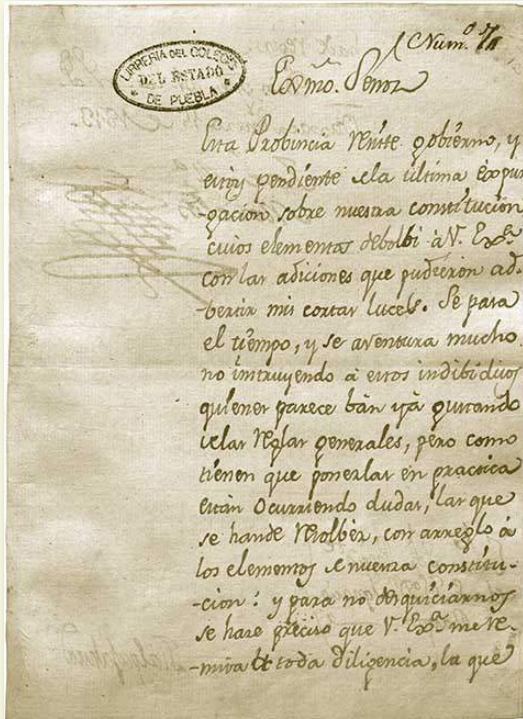 Num.º 7
LIBRERIA DEL COLEGIO
DEL ESTADO
DE PUEBLA
Exmo. Señor
Esta Provincia resiste gobierno, y
estoy pendiente de la última expur
-gacion sobre nuestra constitucion
cuios elementos debolbi à V. Exª.
con las adiciones que pudieron ad-
bertir mis cortas luces. Se pasa
el tiempo, y se aventura mucho
no instruyendo à estos indibiduos
quienes parece bàn yà gustando
de las reglas generales, pero como
tienen que ponerlas en practica
estàn ocurriendo dudas, las que
se han de resolbèr, con arreglo à
los elementos de nuestra constitu-
-cion: y para no desquiciarnos
se hase preciso que V. Exª. me re-
-mita con toda diligencia, la que